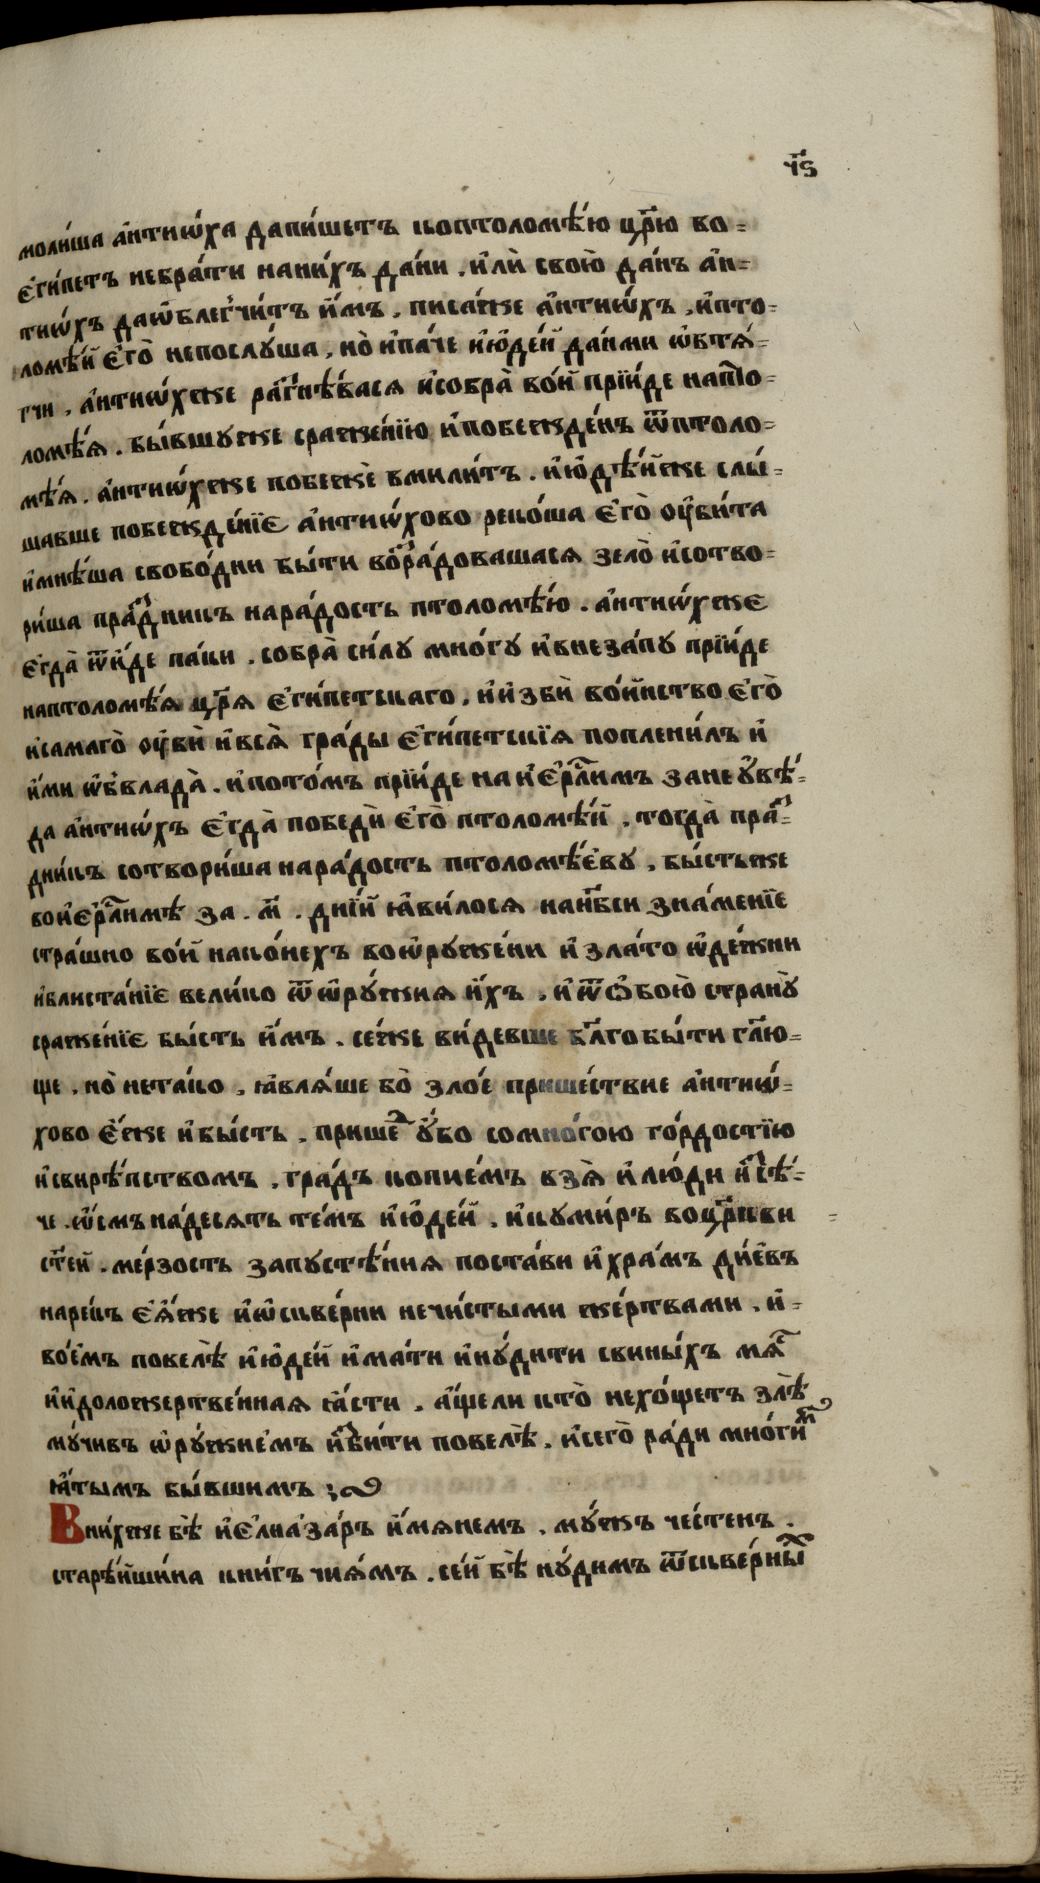 ч҃ѕ
моли́ша а҆нтиѡ́ха дапи́шетъ коптоломѣ́ю цр҃ю во=
є҆ги́петъ небра́ти нани́хъ да́ни . и҆лѝ свою̀ да́нъ а҆н=
тиѡ́хъ даѡ҆блегчи́тъ и҆́мъ . писа́же а҆нтиѡ́хъ , и҆пто=
ломѣ́й є҆го̀ непослꙋ́ша , но̀ и҆па́че и҆ю҆де́й да́нми ѡ҆втѧ́=
гчи . а҆нтиѡ́хже ра́гнѣ́васѧ и҆собра̀ во́й прїи́де напто=
ломѣ́ѧ . бы́вшꙋже сраже́нїю и҆побежде́нъ ѿптоло=
мѣ́ѧ . а҆нтиѡ́хже побежѐ вмили́тъ . и҆ю҆дѣ́йже слы́=
шавше побежде́нїе а҆нтиѡ́хово реко́ша є҆го̀ ѹ҆би́та
и҆мнѣ́ша свобо́дни бы́ти во́зра́довашасѧ зело̀ и҆сотво=
ри́ша пра́здникъ нара́дость птоломѣ́ю . а҆нтиѡ́хже
є҆гда̀ ѿи́де па́ки . собра̀ си́лꙋ мно́гꙋ и҆внеза́пꙋ прїи́де
наптоломѣ́ѧ цр҃ѧ є҆ги́петскаго , и҆и҆збѝ во́инство є҆го̀
и҆самаго̀ ѹ҆бѝ и҆всѧ̀ гра́ды є҆ги́петскїѧ поплени́лъ и҆
и҆́ми ѡ҆бвлада̀ . и҆пото́мъ прїи́де на и҆є҆рл҃имъ зане ꙋ҆вѣ́=
да а҆нтиѡ́хъ є҆гда̀ победѝ є҆го̀ птоломѣ́й , тогда̀ пра́з=
дни́къ сотвори́ша нара́дость птоломѣ́еву , бы́стьже
вои҆є҆рл҃имѣ за . м҃ . дні́й ꙗ҆ви́лосѧ нан҃бси зна́менїе
стра́шно во́й нако́нехъ воѡ҆рꙋже́нии и҆зла́то ѡ҆де́жни
и҆блиста́нїе вели́ко ѿ ѡ҆рꙋ́жиѧ и҆́хъ . и҆ѿѻ҆бою̀ странꙋ̀
сраже́нїе бы́сть и҆́мъ . се́же ви́девше бл҃го бы́ти гл҃ю=
ще , но̀ нета́ко , ꙗ҆влѧ́ше бо̀ зло́е прише́ствие а҆нтиѡ́=
хово є҆́же и҆бы́сть . прише́д ꙋ҆́бо сомно́гою го́рдостїю
и҆свирѣ́пством . гра́дъ копие́мъ взѧ̀ и҆лю́ди и҆зсѣ́=
че . ѡ҆́смъ на́десѧть те́мъ и҆ю҆де́й . и҆кꙋми́ръ воцр҃кви
ст҃ей . ме́рзость запꙋстѣ́ниѧ поста́ви и҆хра́мъ ди́евъ
наре́къ є҆ѧ́же и҆ѡ҆скве́рни нечи́стыми же́ртвами . и҆=
во́емъ повелѣ̀ и҆ю҆де́й и҆ма́ти и҆нꙋ́дити свины́хъ мѧ́с
и҆и҆доложертве́ннаѧ ꙗ҆́сти . а҆́щели кто̀ нехо́щетъ злѣ̀
мꙋ́чивъ ѡ҆рꙋ́жием и҆зби́ти повелѣ̀ . и҆сего̀ ра́ди мно́гим
ꙗ҆́тымъ бы́вшимъ
Вни́хже бѣ̀ и҆є҆лиа́за́ръ и҆́мѧнемъ . мꙋ́жъ че́стенъ .
старѣ́йши́на кни́гъ чиѧ́мъ . се́й бѣ̀ нꙋ́димъ ѿскве́рных